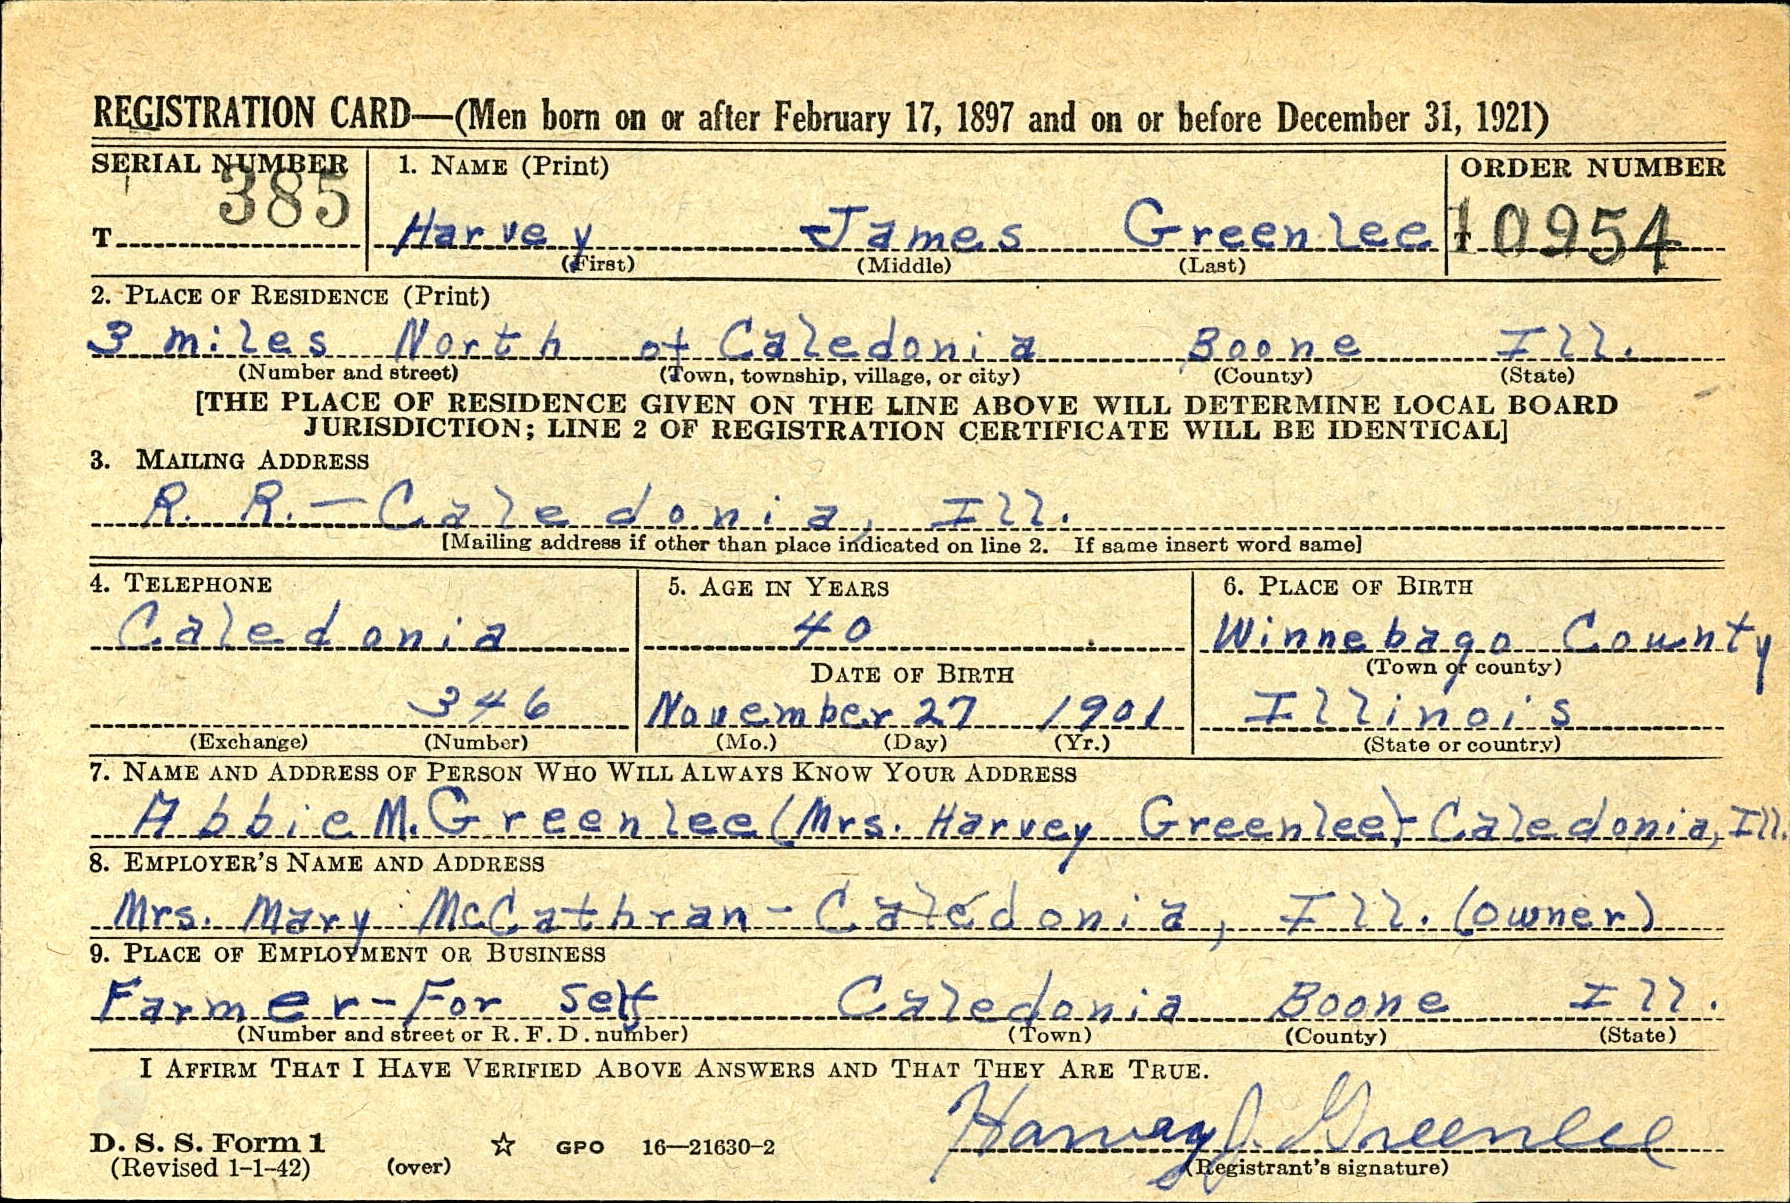 REGISTRATION CARD—(Men born on or after February 17, 1897 and on or before December 31, 1921)
SERIAL NUMBER 1. NAME (Print) ORDER NUMBER
T 385 Harvey James Greenlee T 10954
(First) (Middle) (Last)
2. PLACE OF RESIDENCE (Print)
3 miles North of Caledonia Boone Ill.
(Number and street) (Town, township, village, or city) (County) (State)
[THE PLACE OF RESIDENCE GIVEN ON THE LINE ABOVE WILL DETERMINE LOCAL BOARD
JURISDICTION; LINE 2 OF REGISTRATION CERTIFICATE WILL BE IDENTICAL]
3. MAILING ADDRESS
R. R. — Caledonia, Ill.
[Mailing address if other than place indicated on line 2. If same insert word same]
4. TELEPHONE 5. AGE IN YEARS 6. PLACE OF BIRTH
Caledonia 40 Winnebago County
DATE OF BIRTH (Town or county)
346 November 27 1901 Illinois
(Exchange) (Number) (Mo.) (Day) (Yr.) (State or country)
7. NAME AND ADDRESS OF PERSON WHO WILL ALWAYS KNOW YOUR ADDRESS
Abbie M. Greenlee (Mrs. Harvey Greenlee)- Caledonia, Ill.
8. EMPLOYER'S NAME AND ADDRESS
Mrs. Mary McCathran - Caledonia, Ill. (owner)
9. PLACE OF EMPLOYMENT OR BUSINESS
Farmer - For self Caledonia Boone Ill.
(Number and street or R. F. D. number) (Town) (County) (State)
I AFFIRM THAT I HAVE VERIFIED ABOVE ANSWERS AND THAT THEY ARE TRUE.
Harvey J. Greenlee
D. S. S. Form 1
(Revised 1-1-42) (over) ☆ GPO 16—21630-2 (Registrant's signature)